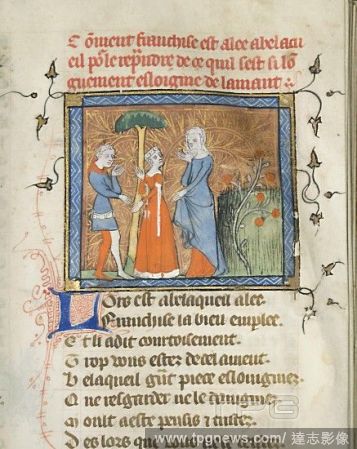 Coment franchise est alee a bel acu
eil por le reprendre de ce quil sest si lo
guement esloigne de lamant
Lors est a bel acueil alee
Franchise la bien emplee
Et li a dit courtoisement
Trop vous estes de cel amant
Belacueil grant piece esloingniez
Qne resgarder ne le daingniez
Mout a este pensis et tristes
Des lors que
TPG
www.tpgnews.com / 達志影像